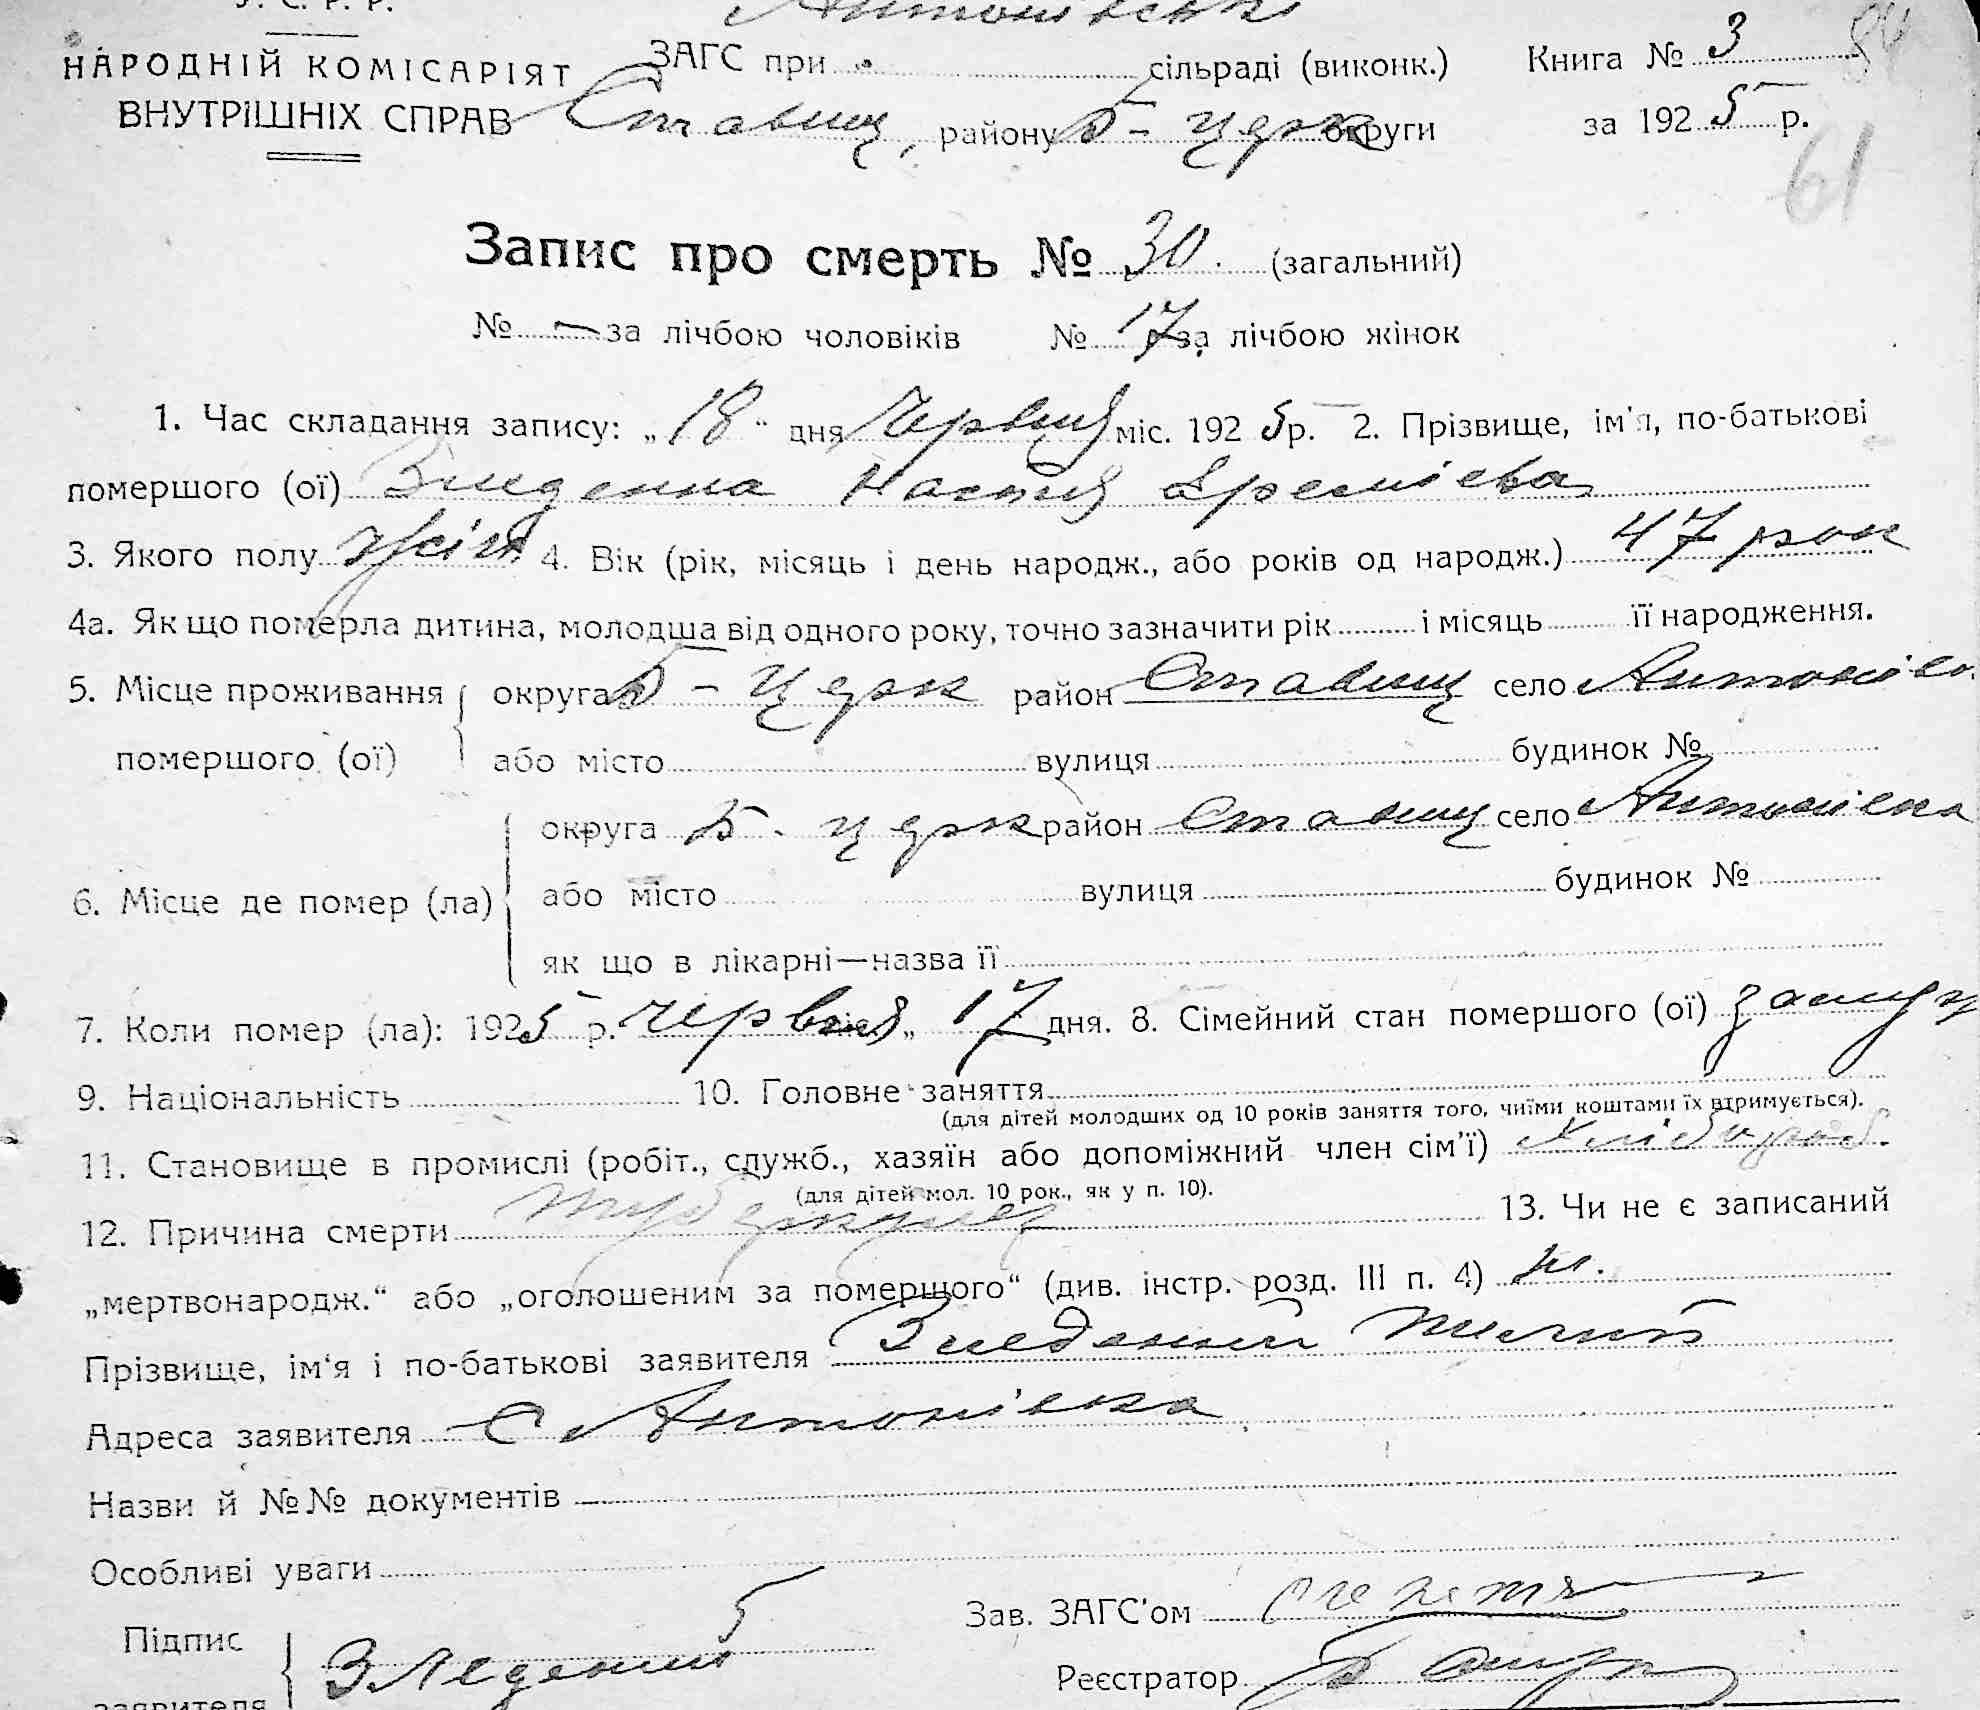 У. С. Р. Р. Антонівські
НАРОДНІЙ КОМІСАРІЯТ ЗАГС при сільраді (виконк.) Книга № 3 84
ВНУТРІШНІХ СПРАВ Ставищ, району Б-Церк округи за 1925 р.
61
Запис про смерть № 30. (загальний)
№ — за лічбою чоловіків № 17 за лічбою жінок
1. Час складання запису: „18" дня Червня міс. 1925 р. 2. Прізвище, ім'я, по-батькові
помершого (ої) Злиденна Настя Яремієва
3. Якого полу жіно 4. Вік (рік, місяць і день народж., або років од народж.) 47 рок
4а. Як що померла дитина, молодша від одного року, точно зазначити рік і місяць її народження.
5. Місце проживання округа Б-Церк район Ставищ село Антонівка
помершого (ої) або місто вулиця будинок №
округа Б. Церк район Ставищ село Антонівка
6. Місце де помер (ла) або місто вулиця будинок №
як що в лікарні—назва її
7. Коли помер (ла): 1925 р. червня міс. „ 17 дня. 8. Сімейний стан помершого (ої) замуж
9. Національність 10. Головне заняття
(для дітей молодших од 10 років заняття того, чиїми коштами їх втримується).
11. Становище в промислі (робіт., служб., хазяїн або допоміжний член сім'ї) Хлібороб.
(для дітей мол. 10 рок., як у п. 10).
12. Причина смерти туберкульоз 13. Чи не є записаний
„мертвонародж.“ або „оголошеним за помершого“ (див. інстр. розд. III п. 4) ні.
Прізвище, ім'я і по-батькові заявителя Злиденний
Адреса заявителя С Антонівка
Назви й №№ документів
Особливі уваги
Зав. ЗАГС'ом
Підпис Зледений
Реєстратор
заявителя